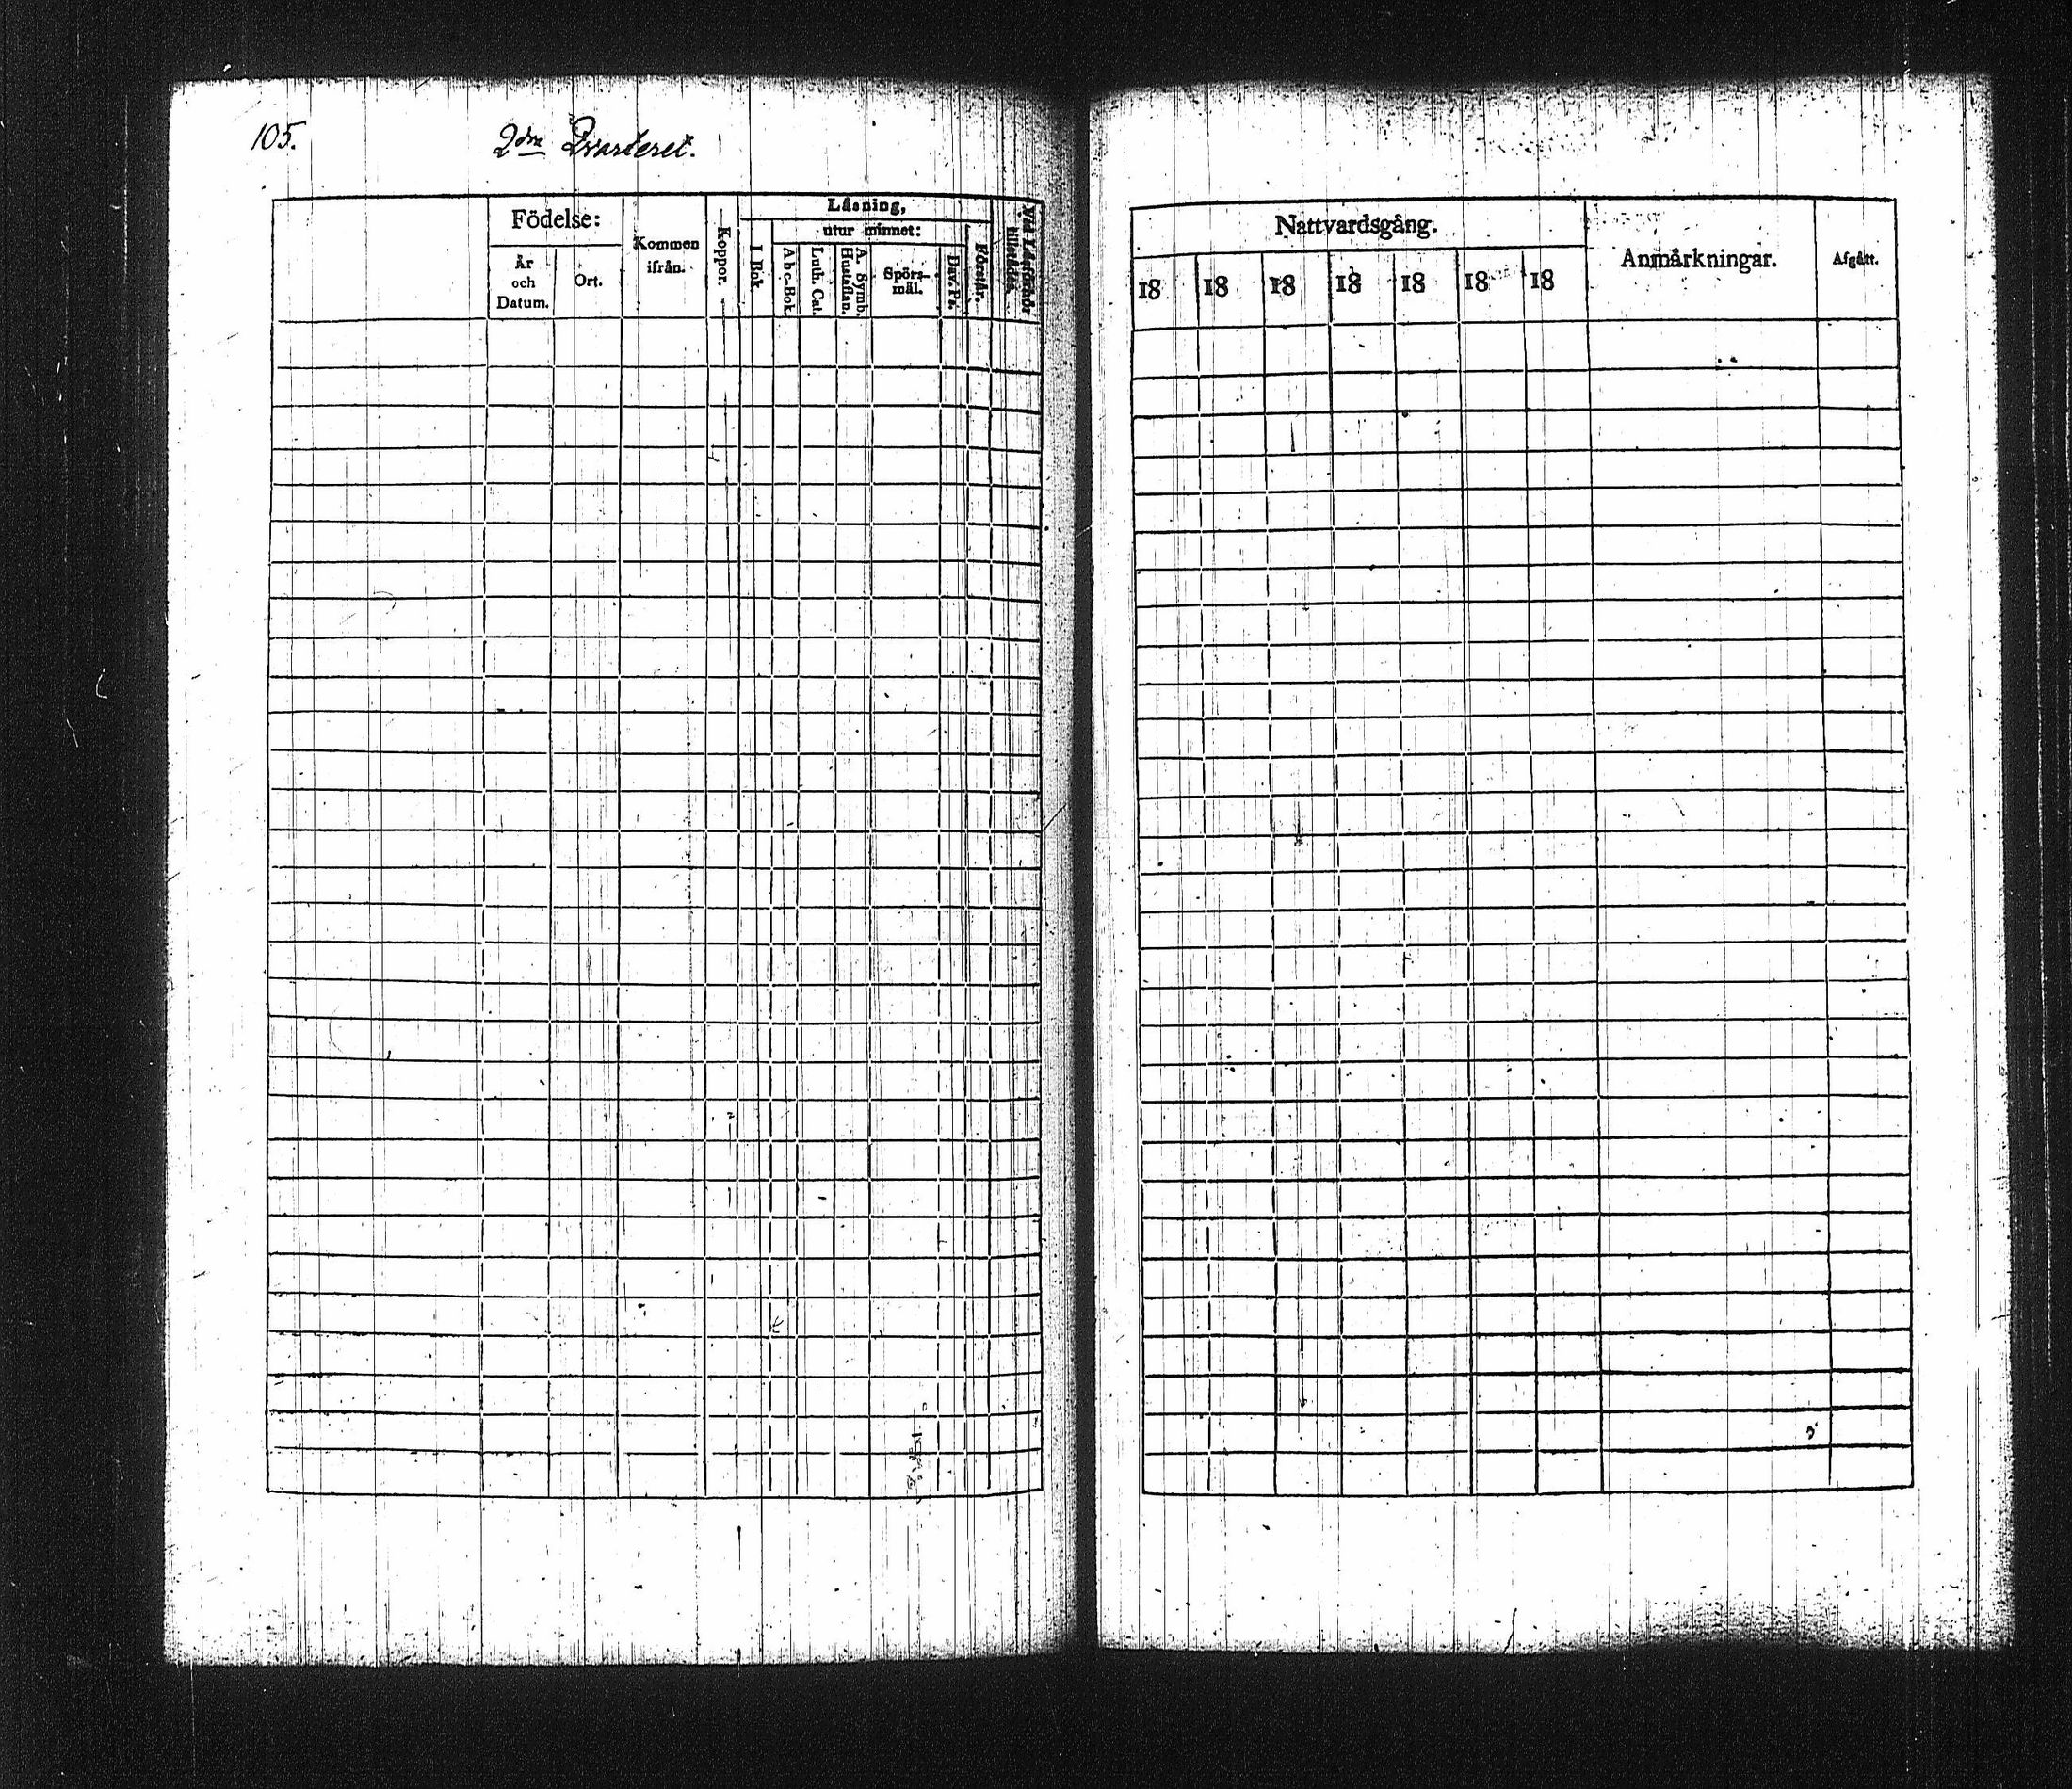 105.
2dra Qvarteret.
Födelse:
År
och
Datum.
Ort.
Kommen
ifrån.
Koppor.
Låsning,
I Bok
utur minnet:
Abc-Bok.
Luth. Cat.
A. Symb.
Hustaflan.
Spörs-
mål.
Dav. Ps.
Förstår.
Vid Låsförhör
tillstädes.
Nattvardsgång.
18 18 18 18 18 18 18
Anmårkningar.
Afgått.